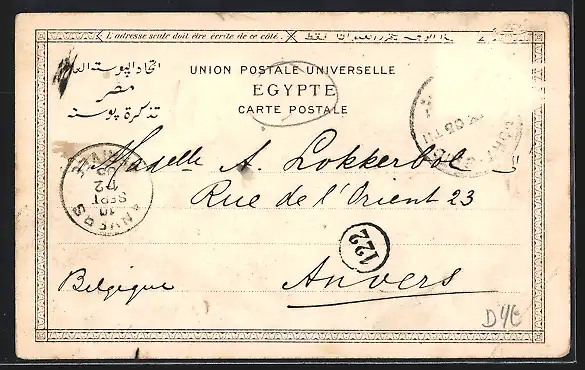 L'adresse seule doit être écrite de ce côté.
اتحاد البوستة العا
مصر
تذكرة بوستة
UNION POSTALE UNIVERSELLE
EGYPTE
CARTE POSTALE
Madelle A. Lokkerbol
Rue de l'Orient 23
Anvers
Belgique
122
ANVERS
10
SEPT
D46